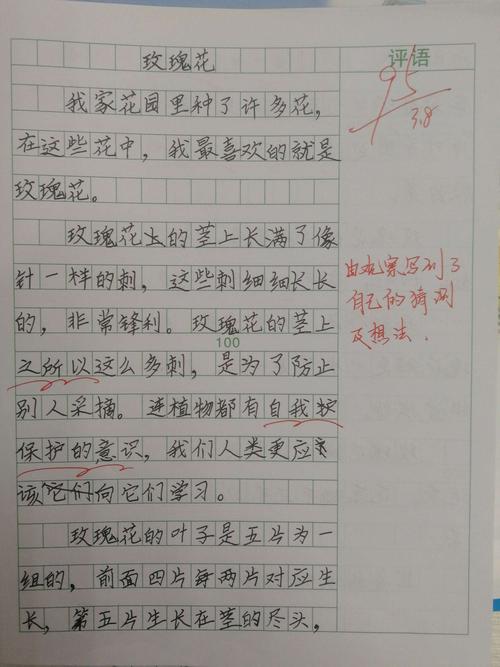 玫瑰花
评语
95
3.8
我家花园里种了许多花，
在这些花中，我最喜欢的就是
玫瑰花。
玫瑰花的茎上长满了像
针一样的刺，这些刺细细长长
的，非常锋利。玫瑰花的茎上
由观察写到了
自己的猜测
及想法．
100
之所以这么多刺，是为了防止
别人采摘。连植物都有自我护
保护的意识，我们人类更应
该它们向它们学习。
玫瑰花的叶子是五片为一
组的，前面四片每两片对应生
长，第五片生长在茎的尽头，